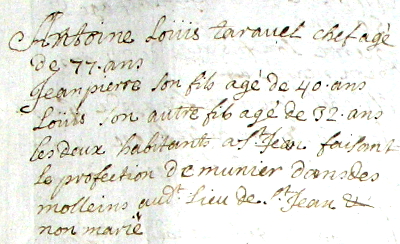 Antoine Loüis taravel chef agé
de 77. ans
Jeanpierre son fils agé de 40. ans
Loüis son autre fils agé de 32. ans
les deux habitants a St Jean faisant
la profection de munier dans des
molleins aud.t lieu de St Jean &
non marié